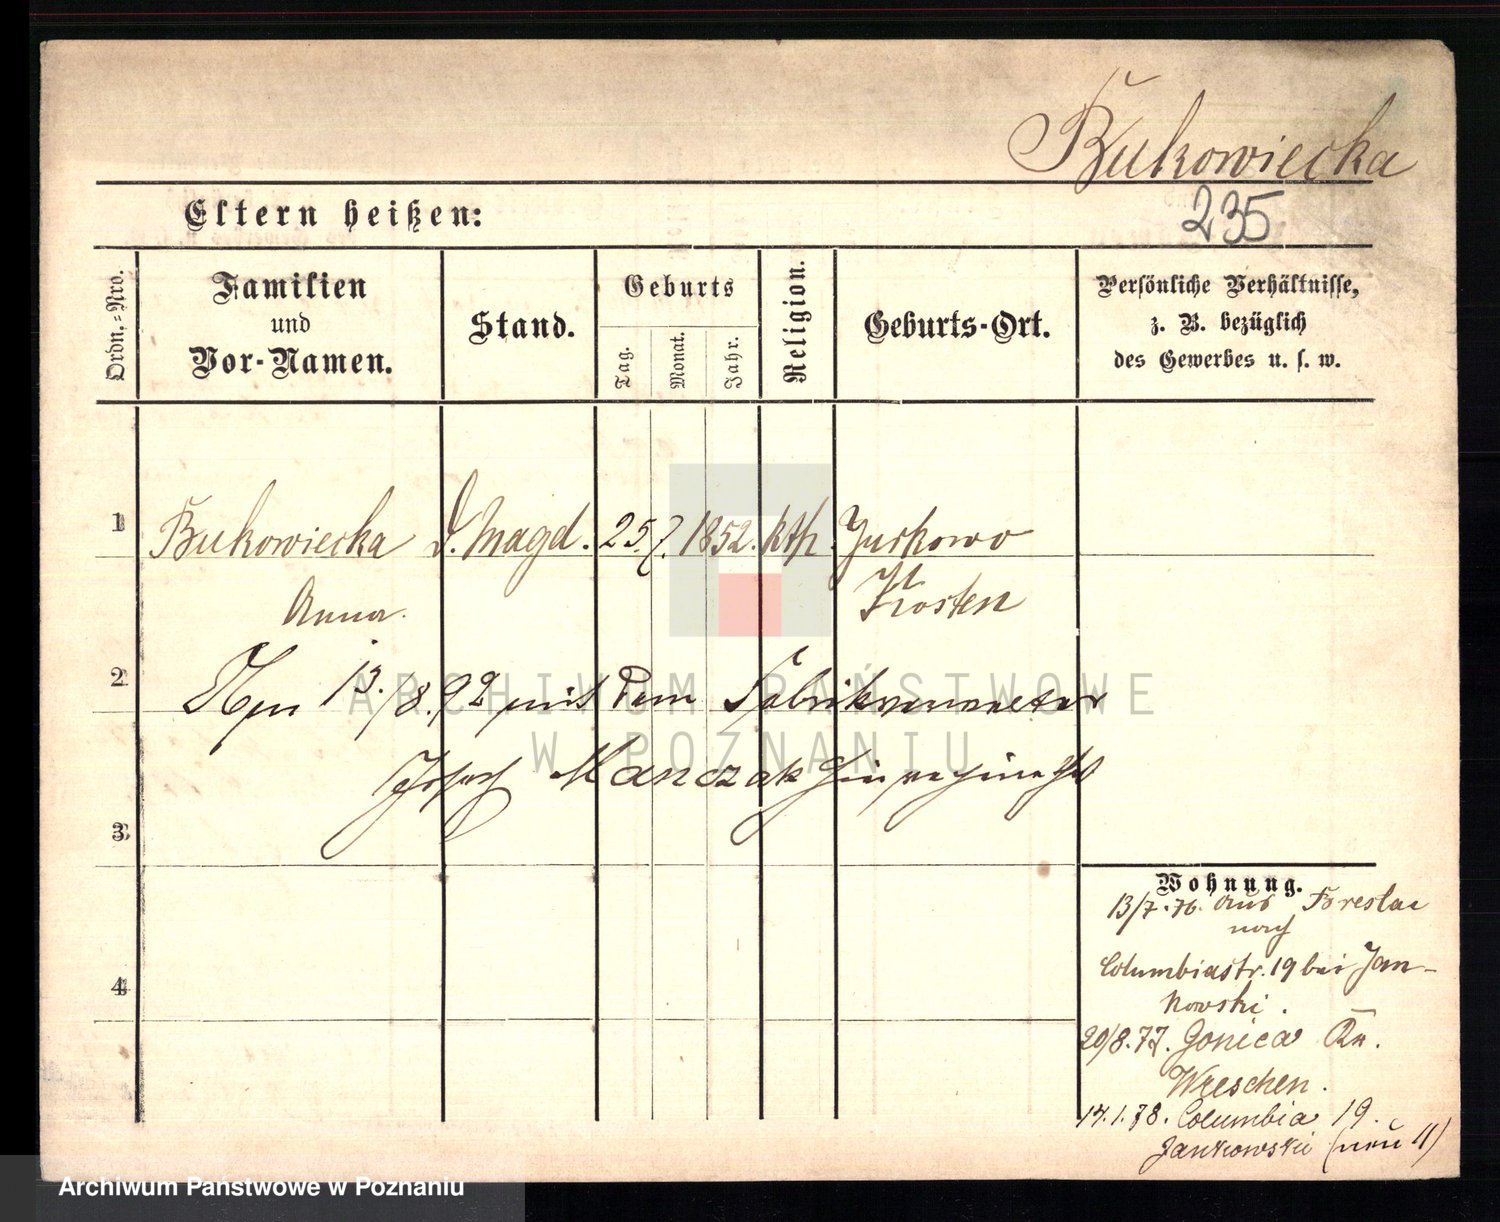 Bukowiecka
235
Eltern heißen:
Ordn.-Nro.
Familien
und
Vor-Namen.
Stand.
Geburts
Tag.
Monat.
Jahr.
Religion.
Geburts-Ort.
Persönliche Verhältnisse,
z. B. bezüglich
des Gewerbes u. s. w.
1 Bukowiecka D. Magd. 25. 7. 1852. kth. Jurkowo
Anna. Kosten
2 13./8.92 mit dem
Josef Manczak
3
4
Wohnung.
13/7.76. aus Breslau
nach
Columbiastr. 19 bei Jan-
kowski.
20/8.77. Gonica Kr.
Wreschen.
14.1.78. Columbia 19.
Jankowski (neu 11)
ARCHIWUM PAŃSTWOWE
W POZNANIU
Archiwum Państwowe w Poznaniu